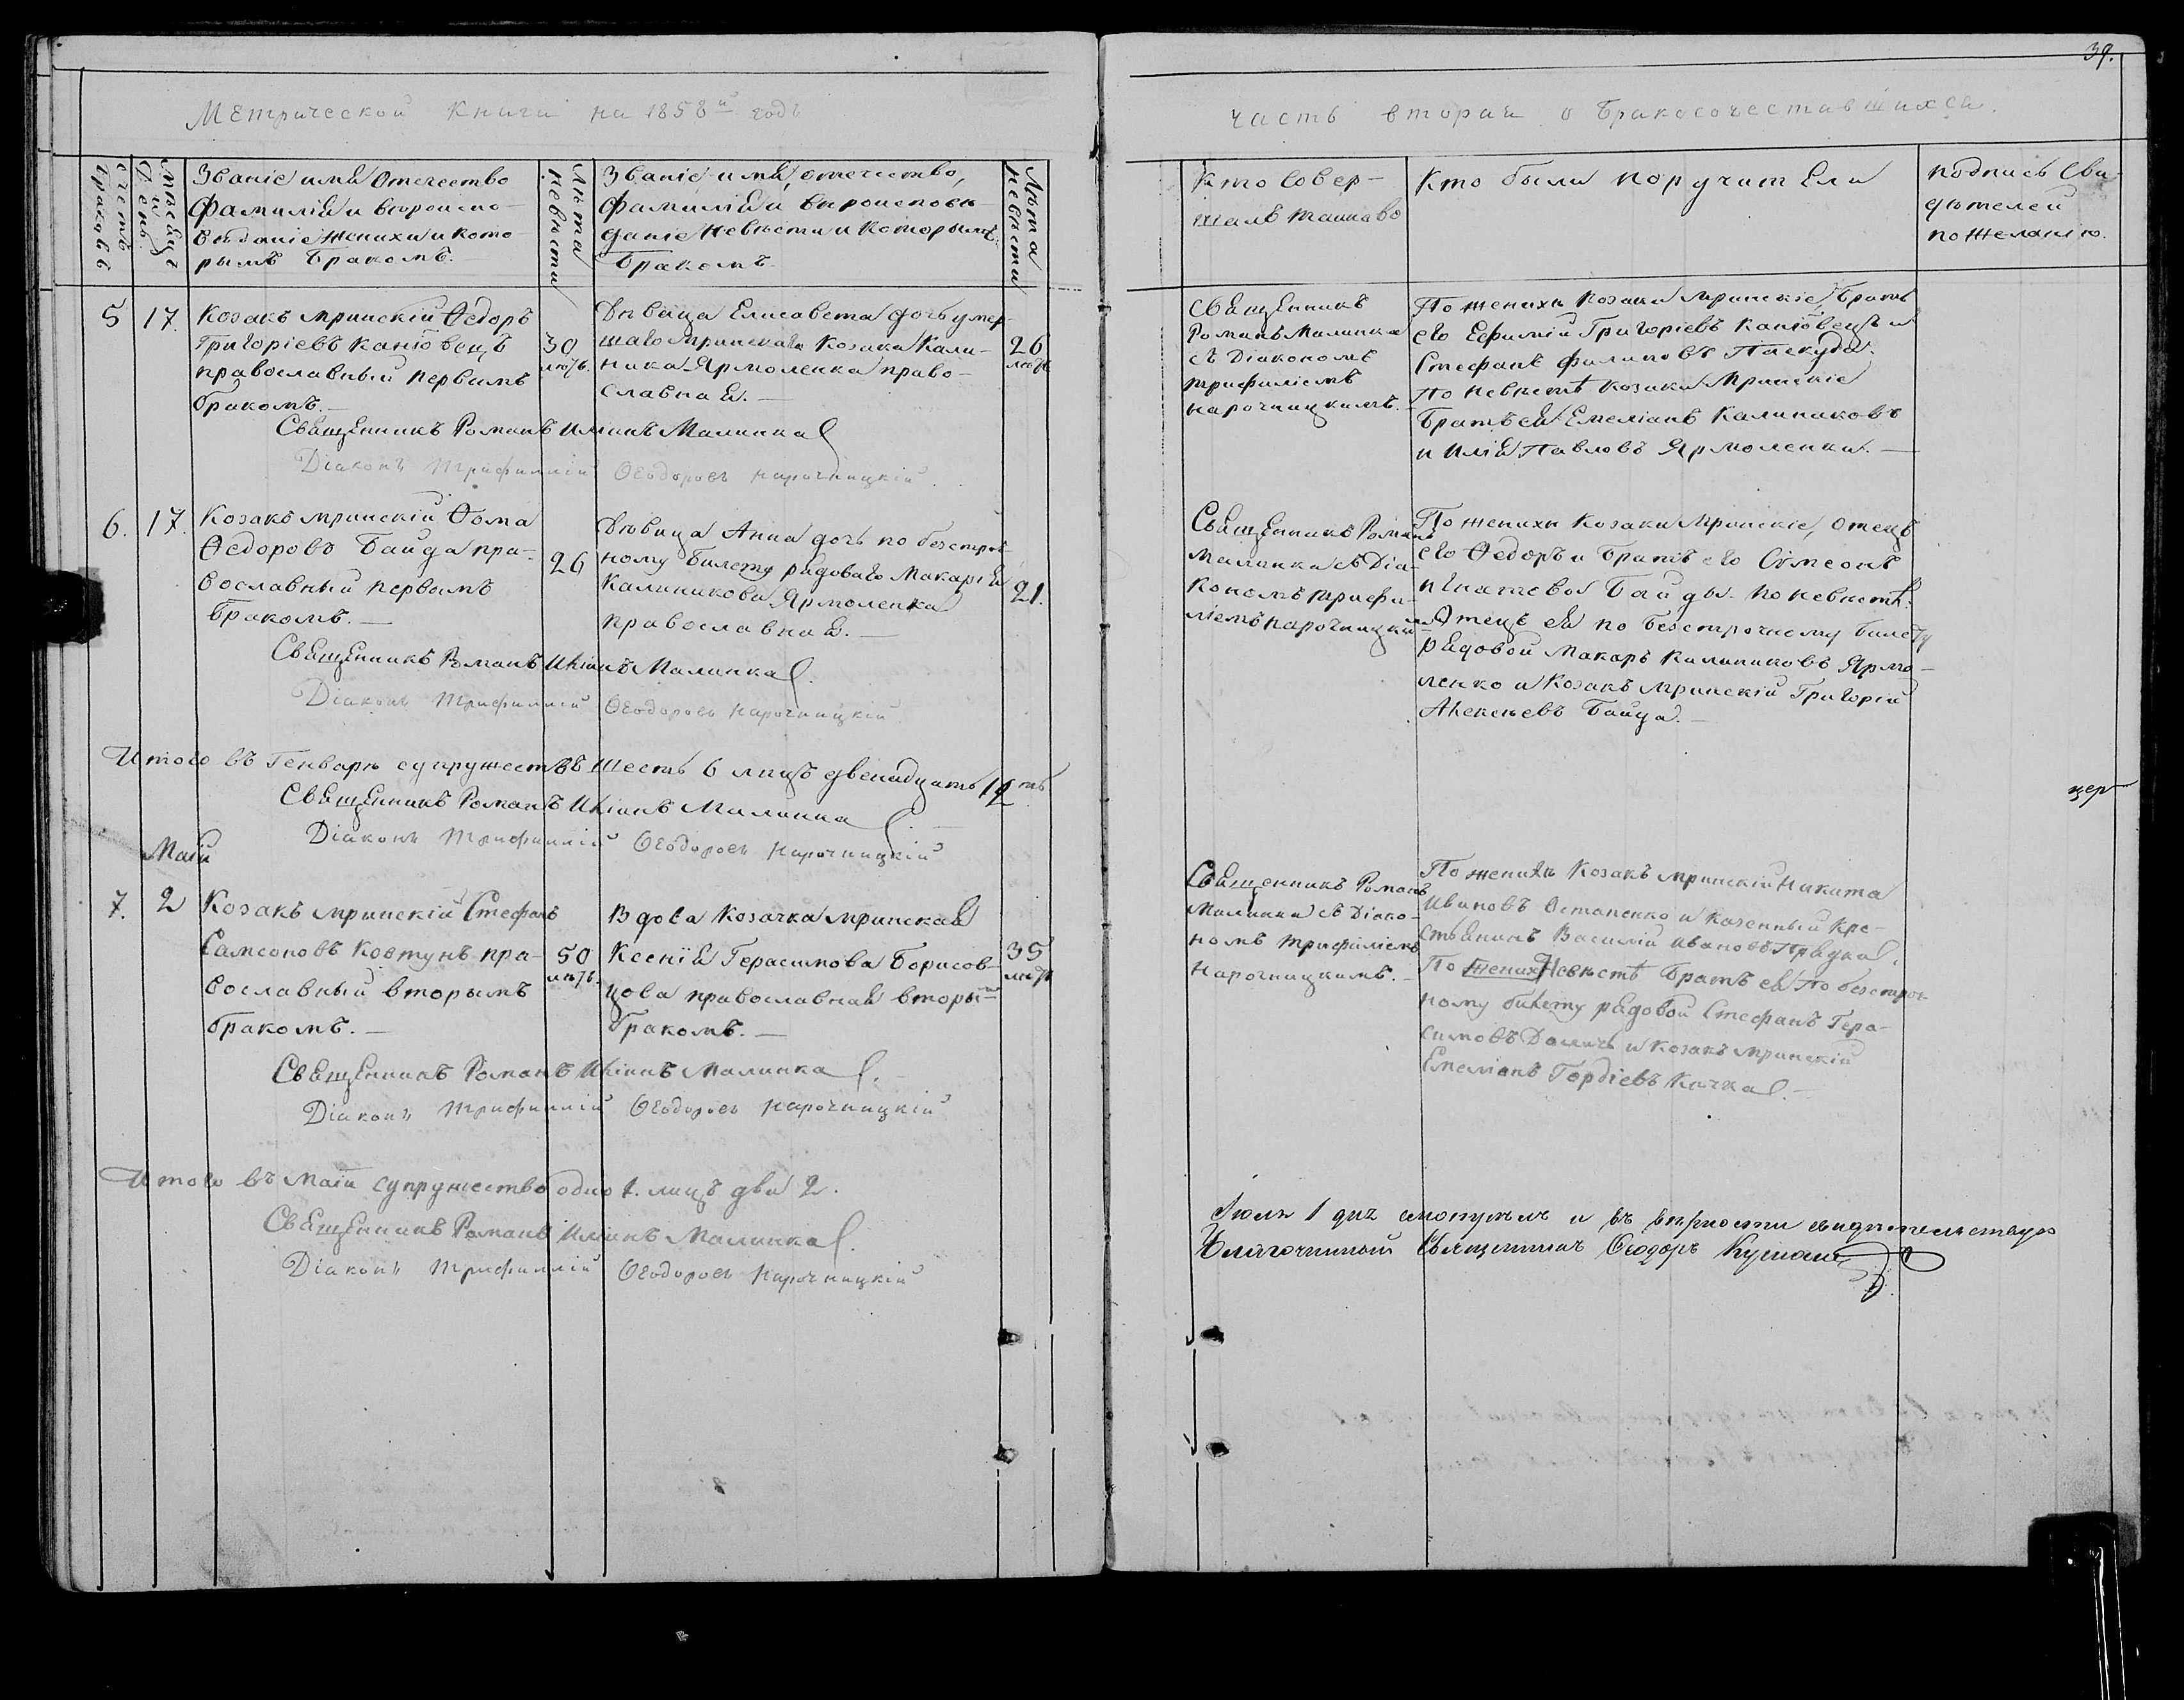 39.
Метрической Книги на 1858й годъ
часть вторая о Бракосочетавшихся.
Счетъ браковъ
Мѣсяцъ и День.
Званіе имя Отечество
Фамилія и вѣроиспо-
вѣданіе жениха и кото-
рымъ бракомъ.
Лѣта невѣсты
Званіе имя, отечество,
Фамилія и вѣроисповѣ-
даніе невѣсты и которымъ
Бракомъ.
Лѣта невѣсты
Кто совер-
шалъ таинство
Кто были поручители
подпись сви-
дѣтелей
по желанію.
5 17.
Козакъ мринскій Ѳедоръ
Григоріевъ Каніовецъ
православный первымъ
бракомъ.
30
лѣтъ.
Дѣвица Елисавета дочь умер-
шаго мринскаго козака Кали-
ника Ярмоленка право-
славная.
26
лѣтъ
Священникъ
Романъ Малинка
съ Діакономъ
трифиліемъ
нарочницкимъ.
По женихѣ Козаки мринскіе, братъ
его Ефимій Григоріевъ Каніовецъ и
Стефанъ филиповъ Паскуда.
по невѣстѣ козаки мринскіе
Братъ ея Емеліанъ Калиниковъ
и Илія Павловъ Ярмоленки.
Священникъ Романъ Иліинъ Малинка
Діаконъ Трифиллій Ѳеодоровъ Нарочницкій.
6. 17.
Козакъ мринскій Ѳома
Ѳедоровъ Байда пра-
вославный первымъ
Бракомъ.
26
Дѣвица Анна дочь по безсроч-
ному билету рядоваго Макарія
Калиникова Ярмоленка
православная.
21.
Священникъ Романъ
Малинка съ Діа-
кономъ трифи-
ліемъ нарочницкимъ
По женихѣ Козаки мринскіе, отецъ
его Ѳедоръ и братъ его Сѵмеонъ
Игнатевы Байды. по невѣстѣ:
Отецъ ея по безсрочному билету
рядовой Макаръ Калиниковъ Ярмо-
ленко и Козакъ мринскій Григорій
Алексѣевъ Байда.
Священникъ Романъ Иліинъ Малинка.
Діаконъ Трифиллій Ѳеодоровъ Нарочницкій
Итого въ Генварѣ супружествъ шесть 6 лицъ двенадцать 12ть
Священникъ Романъ Иліинъ Малинка
Діаконъ Трифиллій Ѳеодоровъ Нарочницкій
цер
Маій
7. 2
Козакъ мринскій Стефанъ
Самсоновъ Ковтунъ пра-
вославный вторымъ
бракомъ.
50
лѣтъ.
Вдова Козачка мринская
Ксенія Герасимова Борисов-
цова православная вторым
бракомъ.
35
лѣтъ
Священникъ Романъ
Малинка съ Діако-
номъ трифиліемъ
Нарочницкимъ.
По женихѣ Козакъ мринскій Никита
Ивановъ Остапенко и казенный кре-
стьянинъ Василій Ивановъ Прядка.
По жених Невѣстѣ братъ ея по безсроч-
ному билету рядовой Стефанъ Гера-
симовъ и козакъ мринскій
Емеліанъ Гордіевъ Кичка.
Священникъ Романъ Иліинъ Малинка.
Діаконъ Трифиллій Ѳеодоровъ Нарочницкій
Итого въ Маіи супружество одно 1. лицъ два 2.
Священникъ Романъ Иліинъ Малинка.
Діаконъ Трифиллій Ѳеодоровъ Нарочницкій
Іюля 1 дня смотрѣлъ и въ вѣрности свидѣтельствую
Благочинный Священникъ Ѳеодоръ